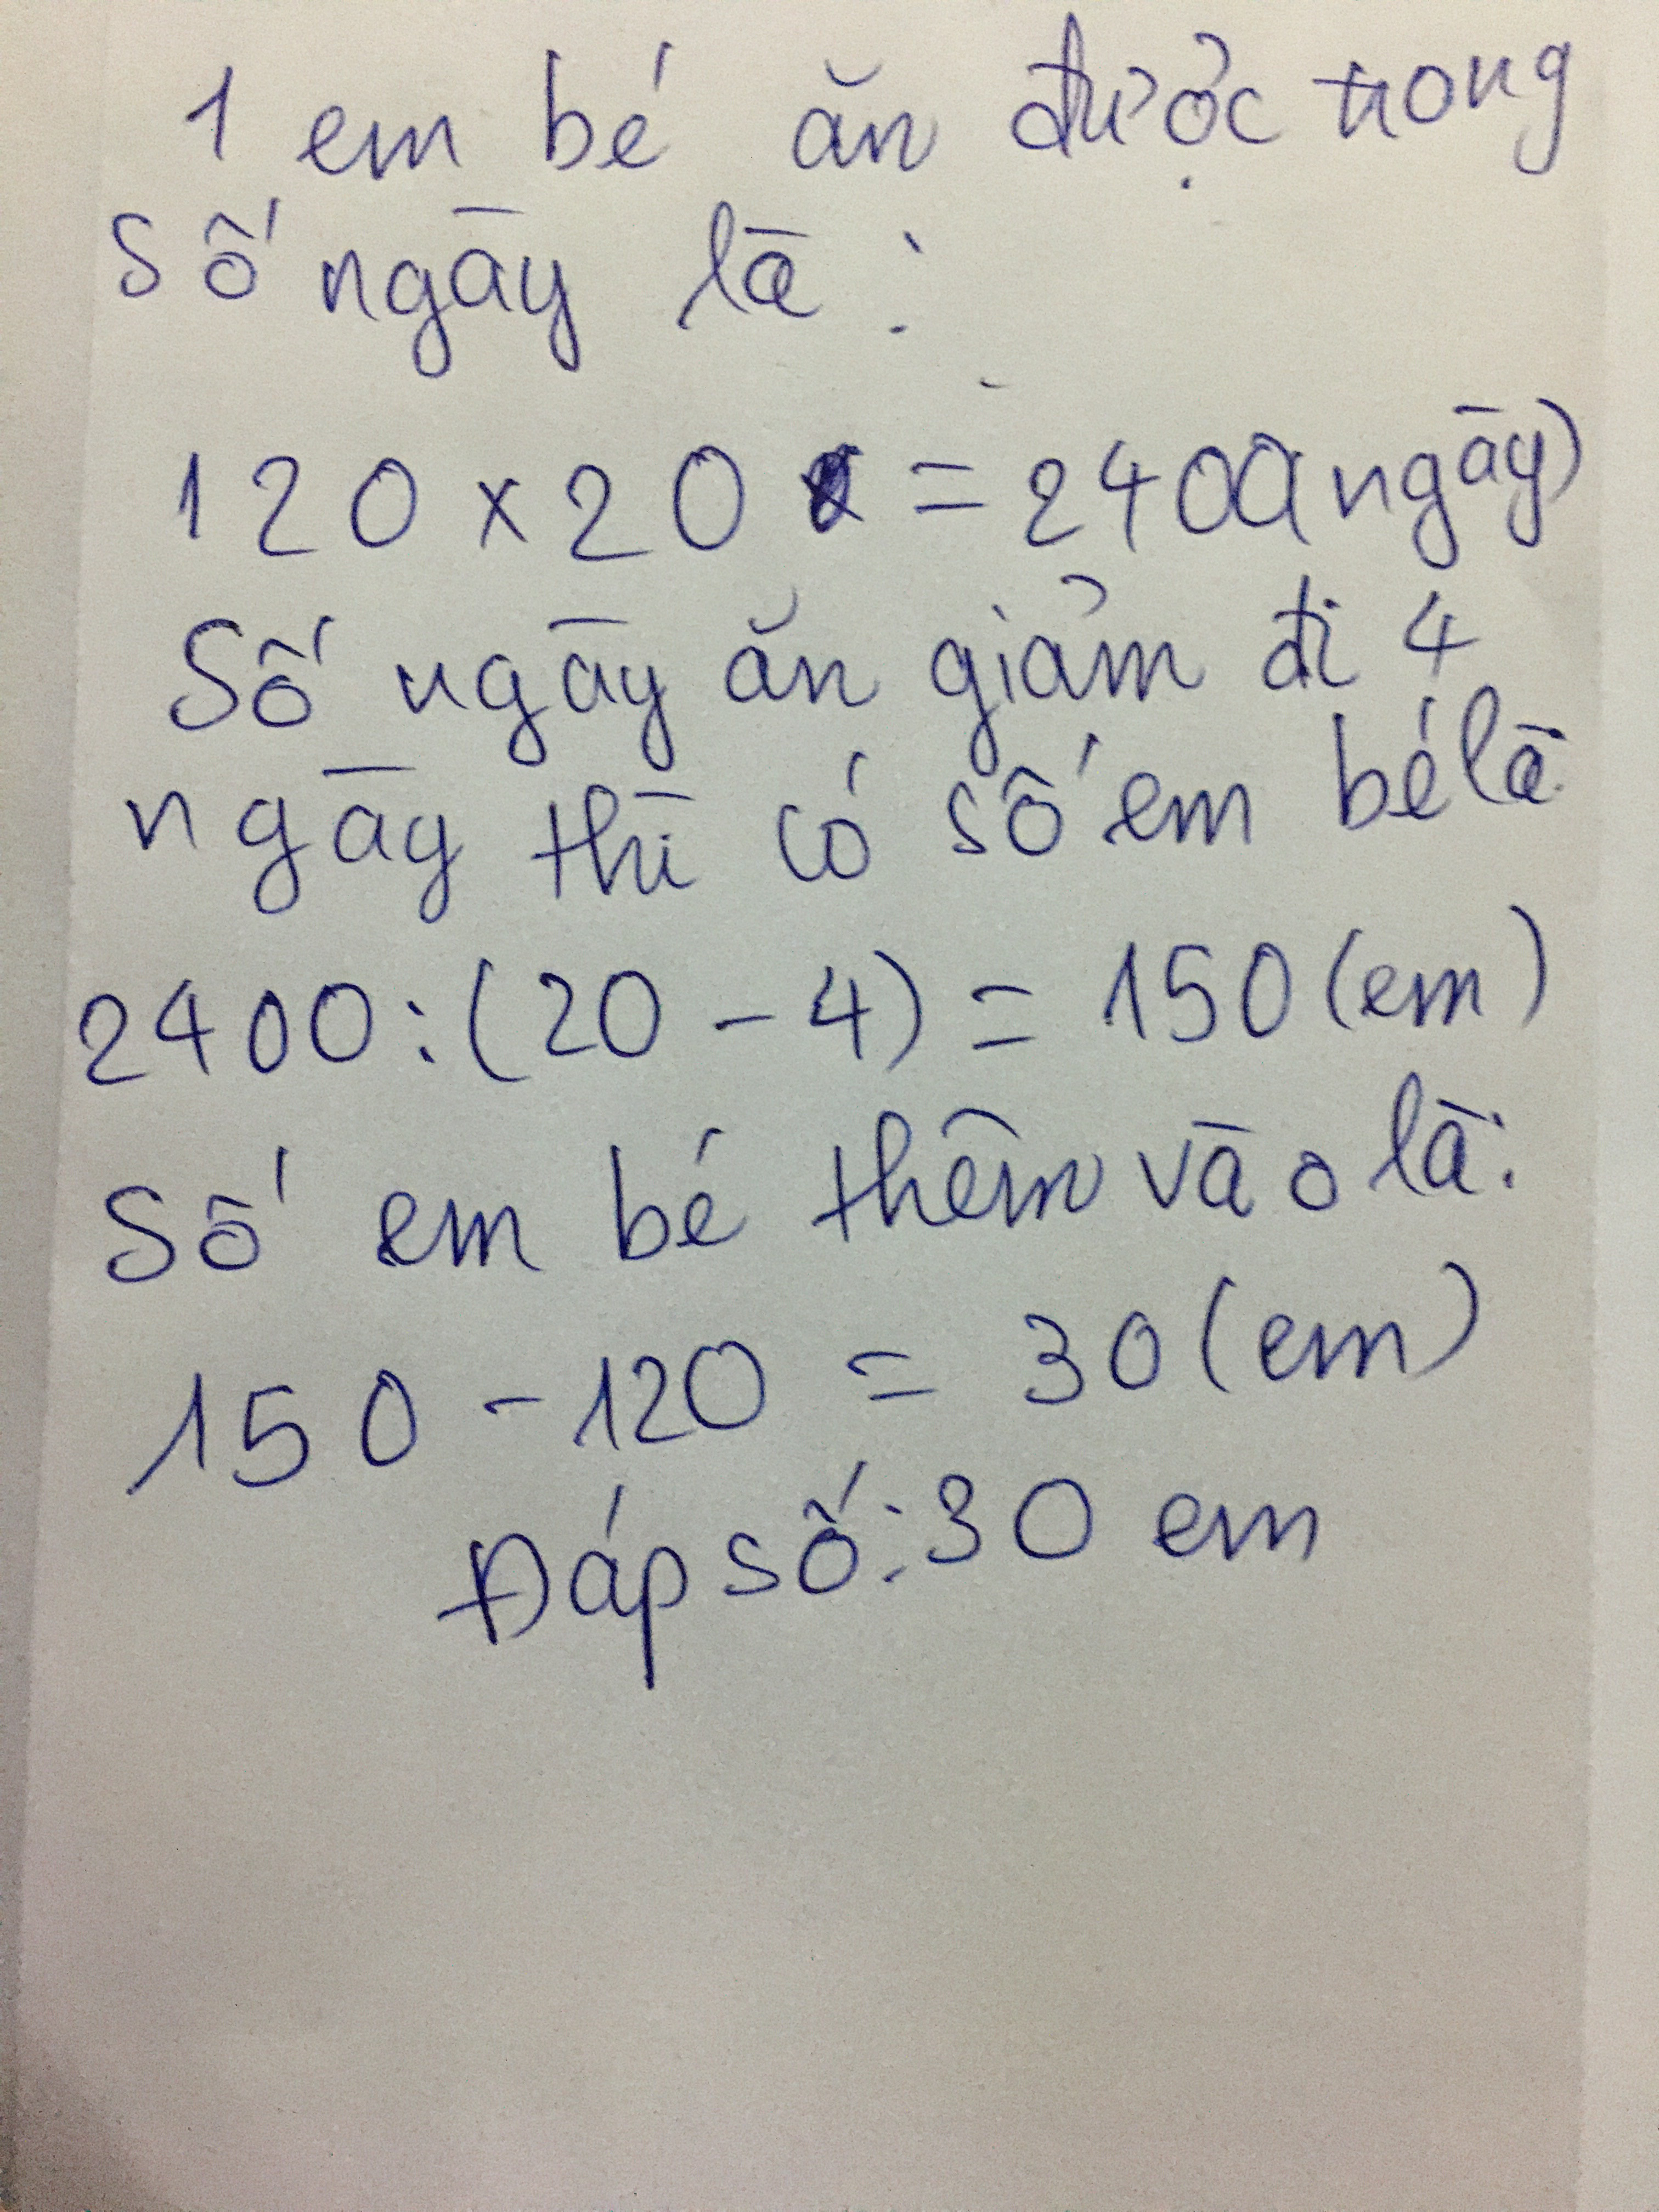 1 em bé ăn được trong
số ngày là :
120 x 20 = 2400(ngày)
Số ngày ăn giảm đi 4
ngày thì có số em bé là
2400:(20 - 4) = 150(em)
Số em bé thêm vào là:
150 - 120 = 30(em)
Đáp số: 30 em